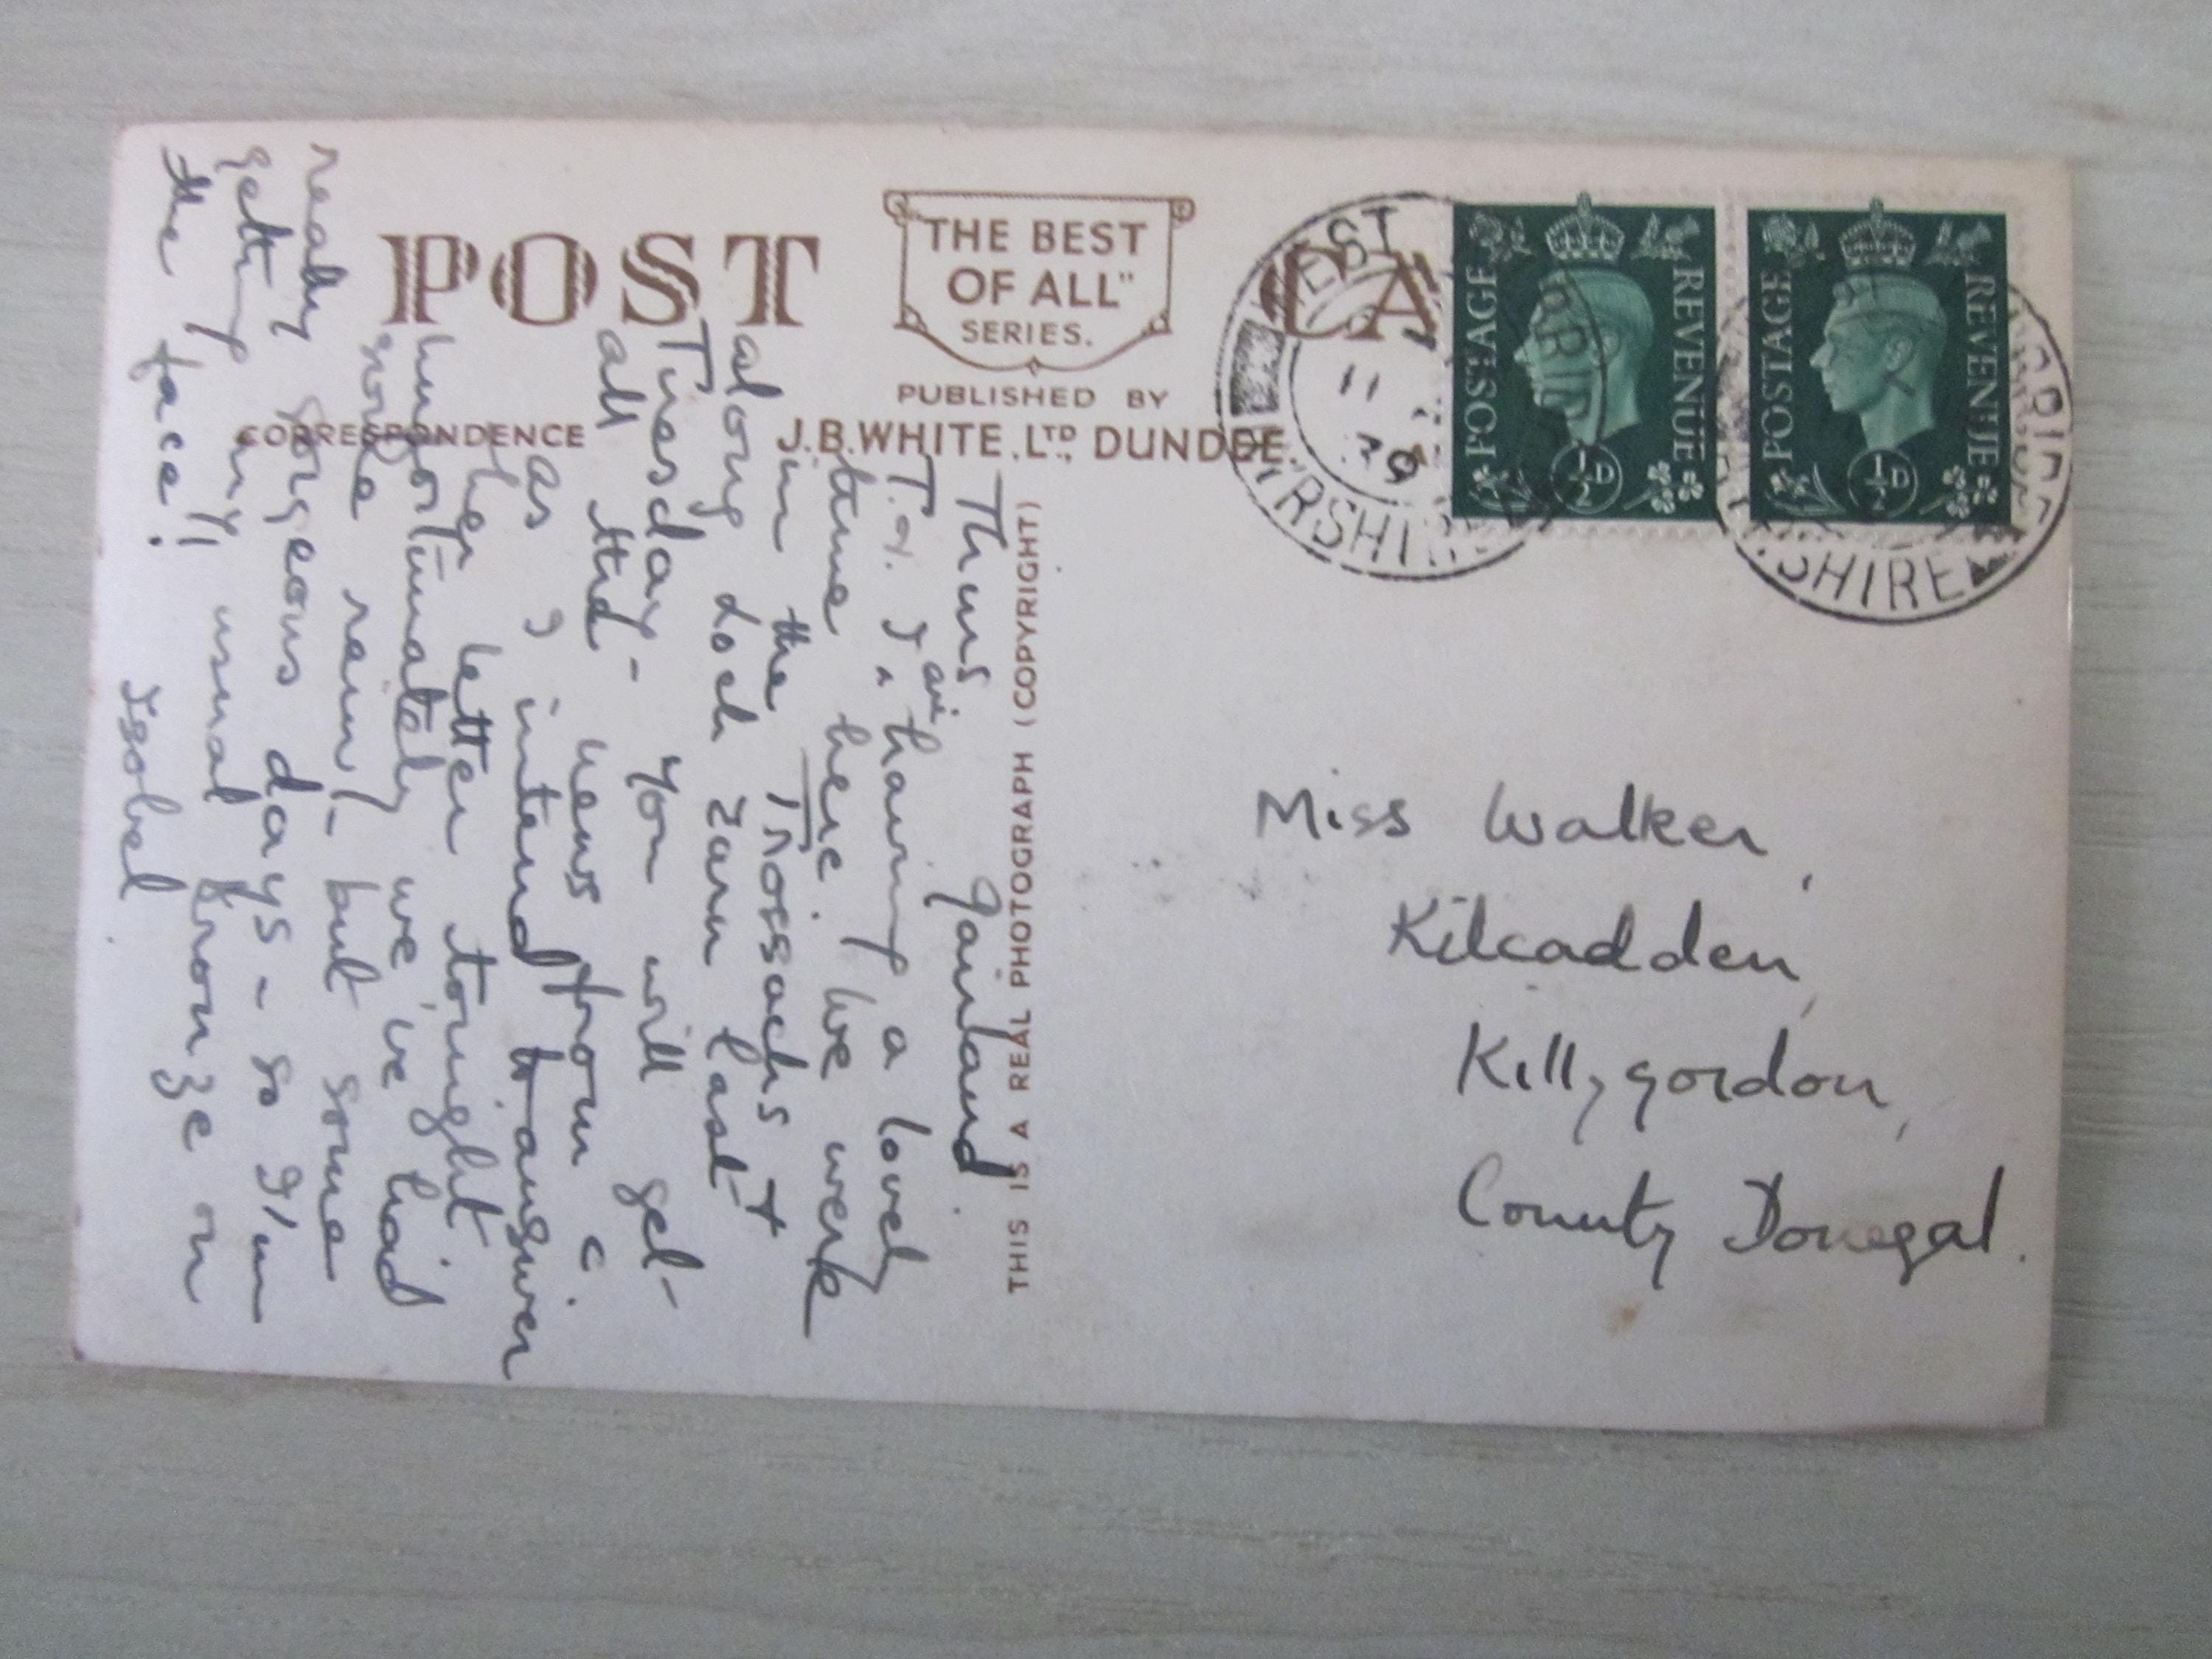 POST CA
"THE BEST
OF ALL"
SERIES.
PUBLISHED BY
J.B.WHITE, LTD., DUNDEE.
CORRESPONDENCE
THIS IS A REAL PHOTOGRAPH (COPYRIGHT)
WEST
11
39
SHIRE
POSTAGE REVENUE
½D
POSTAGE REVENUE
½D
Miss Walker,
Kilcadden,
Killygordon,
County Donegal.
Thurs
T. & I are having a lovely
time here. We were
in the Trossachs &
along Loch Earn last
Tuesday - You will get
all the news from C.
as I intend to answer
her letter tonight
Unfortunately we've had
some rain, - but some
really gorgeous days - so I'm
getting my usual bronze on
the face!
Isobel